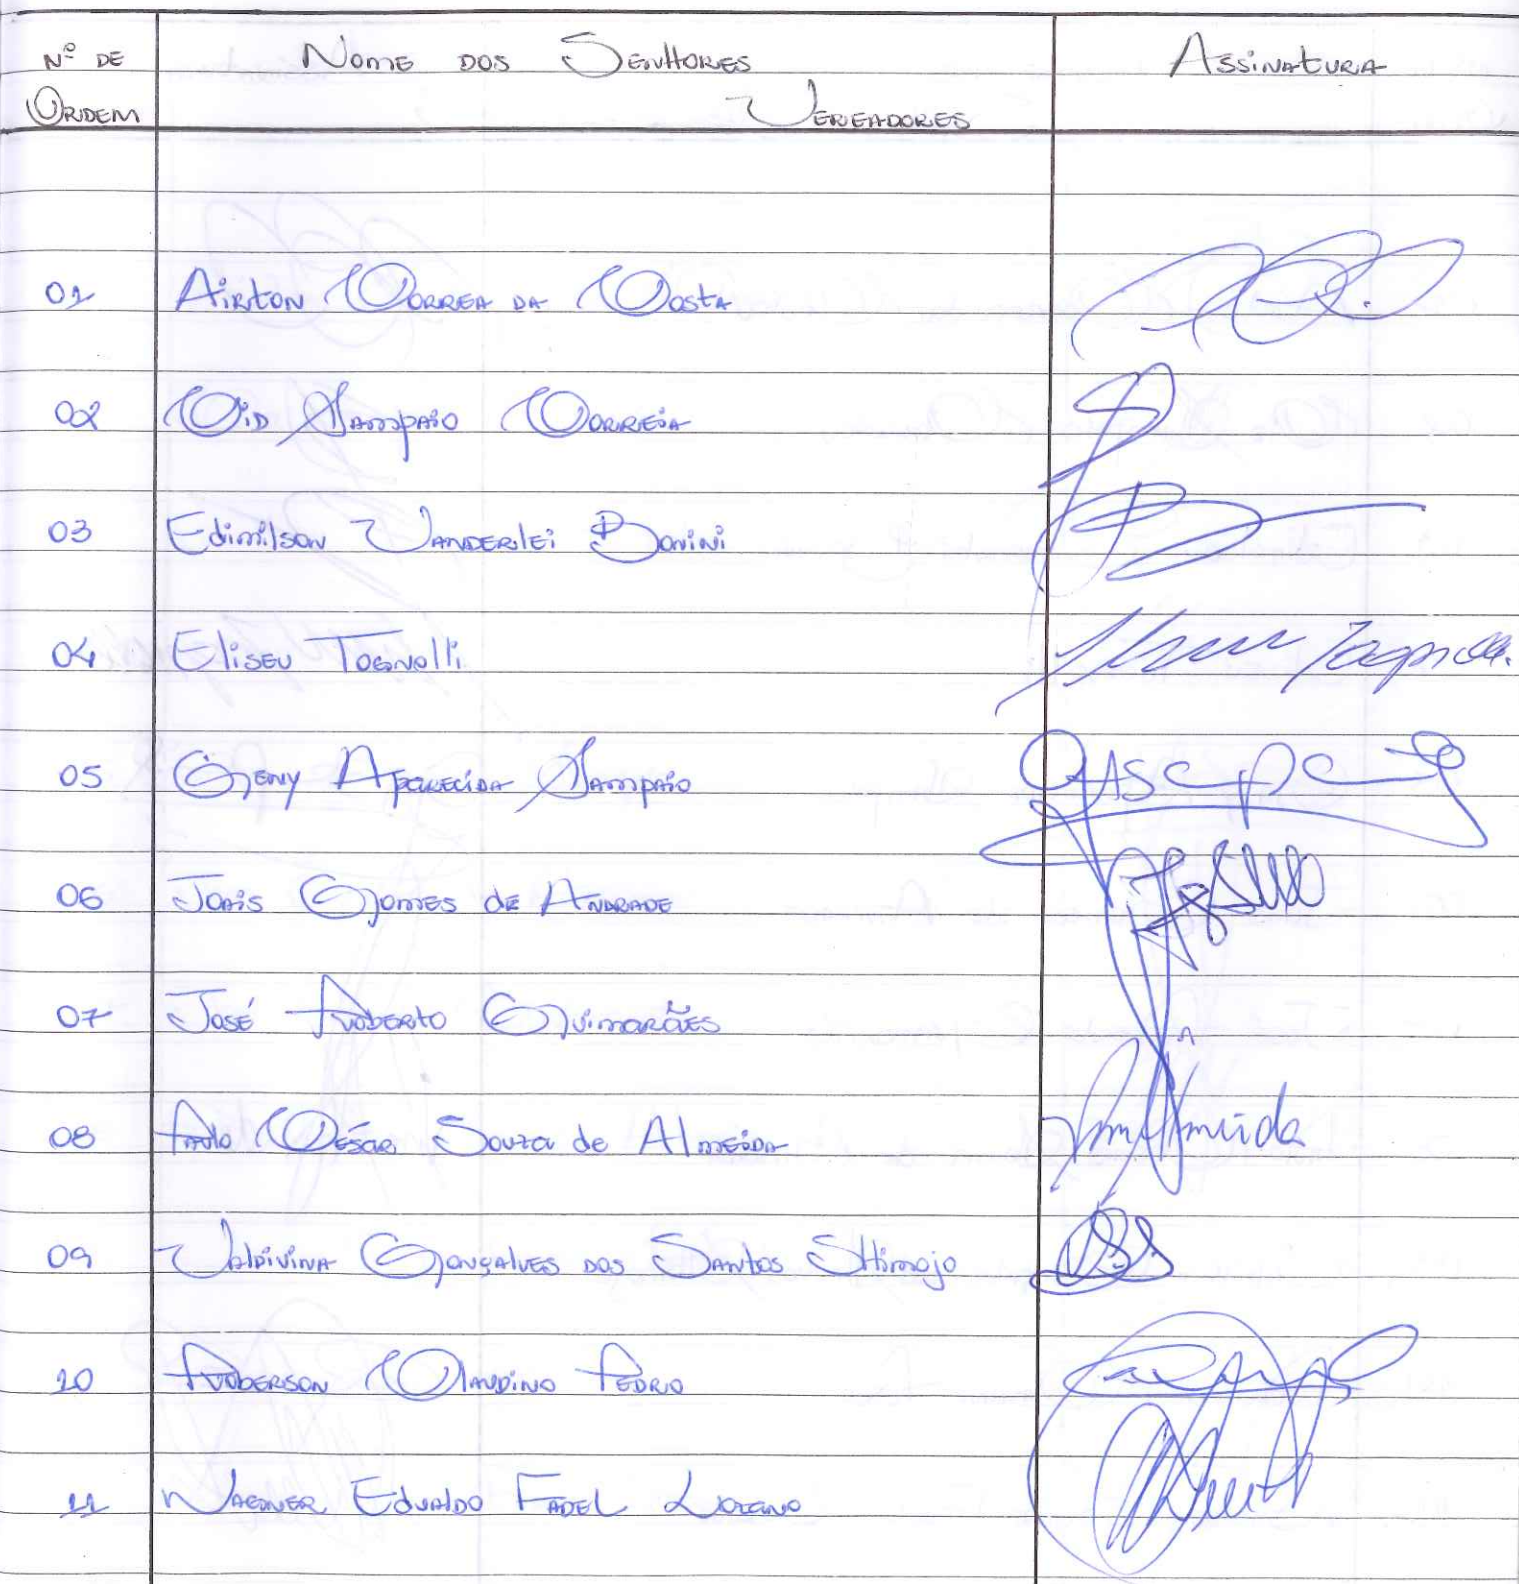 Nº DE
ORDEM
NOME DOS SENHORES
VEREADORES
ASSINATURA
01 AIRTON CORREA DA COSTA
02 CID SAMPAIO CORREIA
03 Edimilson VANDERLEI BONINI
04 ELISEU TOGNOLLI
05 GENY APARECIDA SAMPAIO
06 JOAIS GOMES de ANDRADE
07 JOSÉ ROBERTO GUIMARÃES
08 PAULO CÉSAR Souza de ALMEIDA
Almeida
09 VALDIVINA GONÇALVES DOS SANTOS SHimojo
10 ROBERSON CLAUDINO PEDRO
11 WAGNER EDUALDO FADEL LOZANO